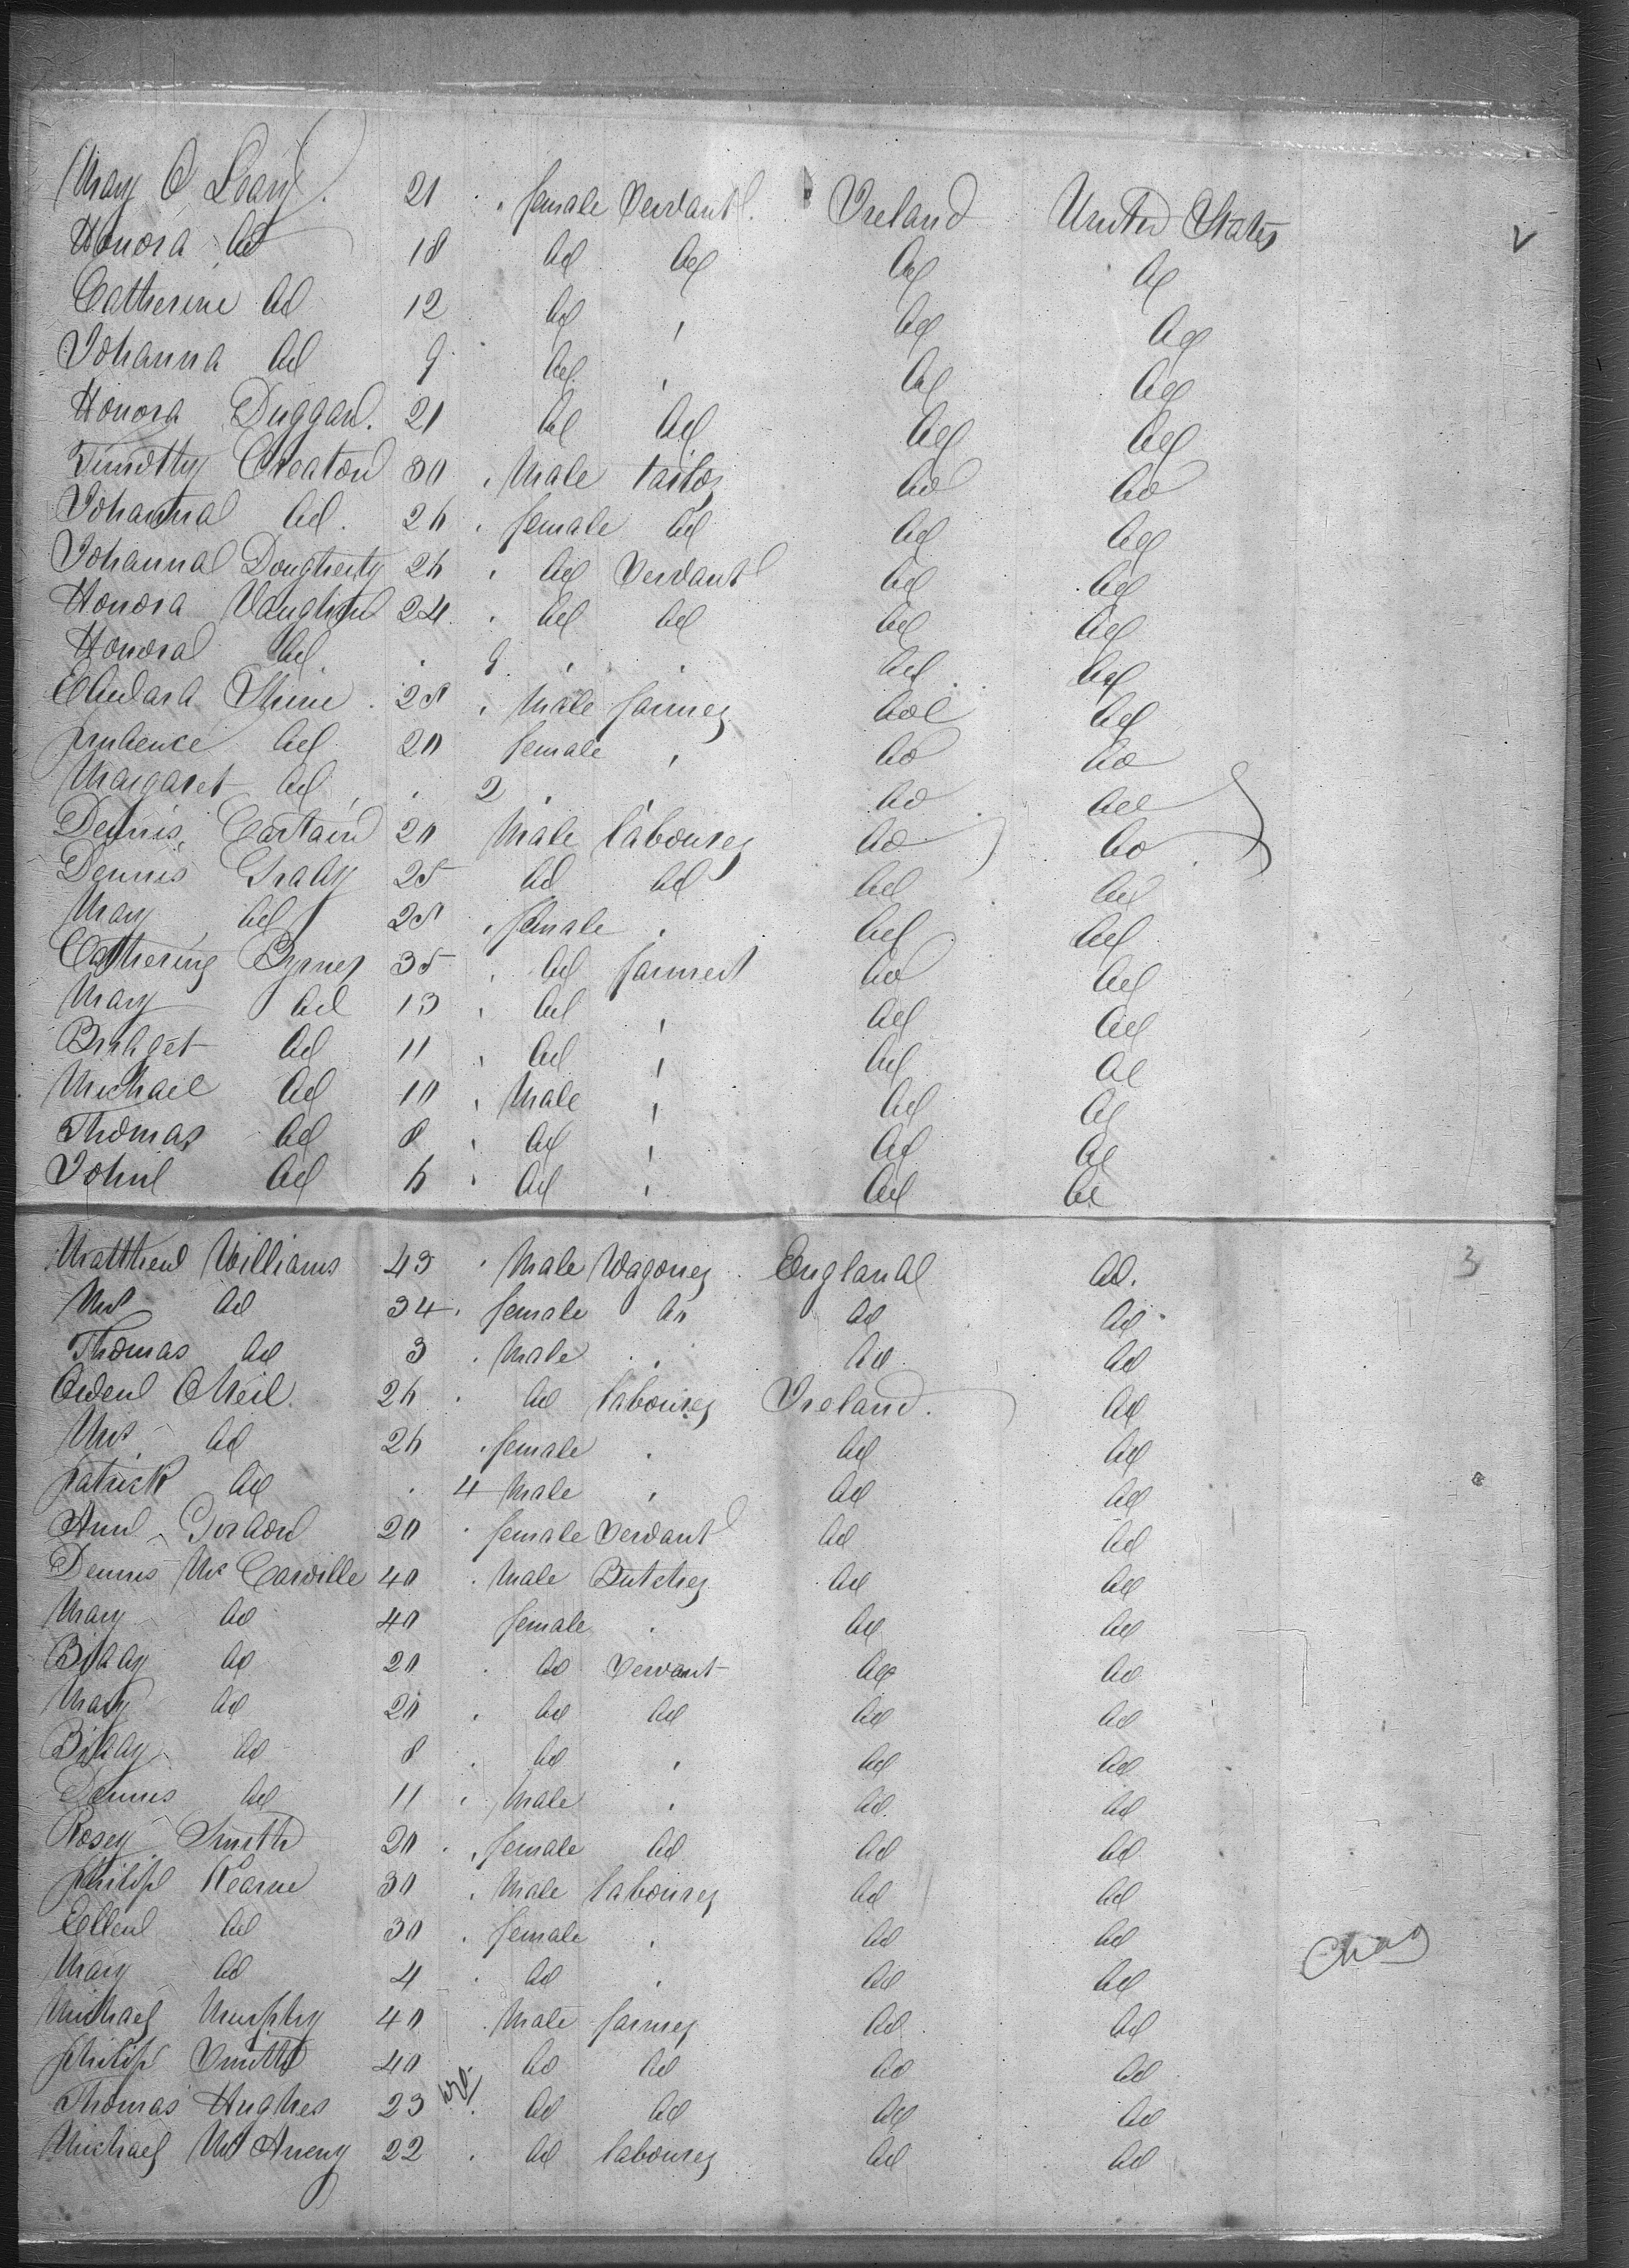 Mary O Leary 21 female Servant Ireland United States
Honora do 18 do do do do
Catherine do 12 do do do
Johanna do 9 do do do
Honora Duggan 21 do do do do
Timothy Creaton 30 Male tailor do do
Johanna do 26 female do do do
Johanna Dougherty 26 do Servant do do
Honora Vaughan 24 do do do do
Honora do 9 do do
Edward Shine 28 Male farmer do do
prudence do 20 female do do
Margaret do 2 do do
Dennis Cartain 20 Male labourer do do
Dennis Grady 25 do do do do
Mary do 25 female do do
Catherine Byrnes 35 do farmer do do
Mary do 13 do do do
Bridget do 11 do do do
Michael do 10 Male do do
Thomas do 8 do do do
John do 6 do do do
Matthew Williams 43 Male Wagoner England do 3
Mrs do 34 female do do do
Thomas do 3 Male do do
Owen ONeil 26 do labourer Ireland do
Mrs do 26 female do do
patrick do 4 Male do do
Ann Gordon 20 female Servant do do
Dennis Mc Carville 40 Male Butcher do do
Mary do 40 female do do
Biddy do 20 do Servant do do
Mary do 20 do do do do
Biddy do 8 do do do
Dennis do 11 Male do do
Rosey Smith 20 female do do do
philip Kearne 30 Male labourer do do
Ellen do 30 female do do
Mary do 4 do do do
Michael Murphy 40 Male farmer do do
philip Smith 40 do do do do
Thomas Hughes 23 do do do do
Michael Mc 22 do labourer do do